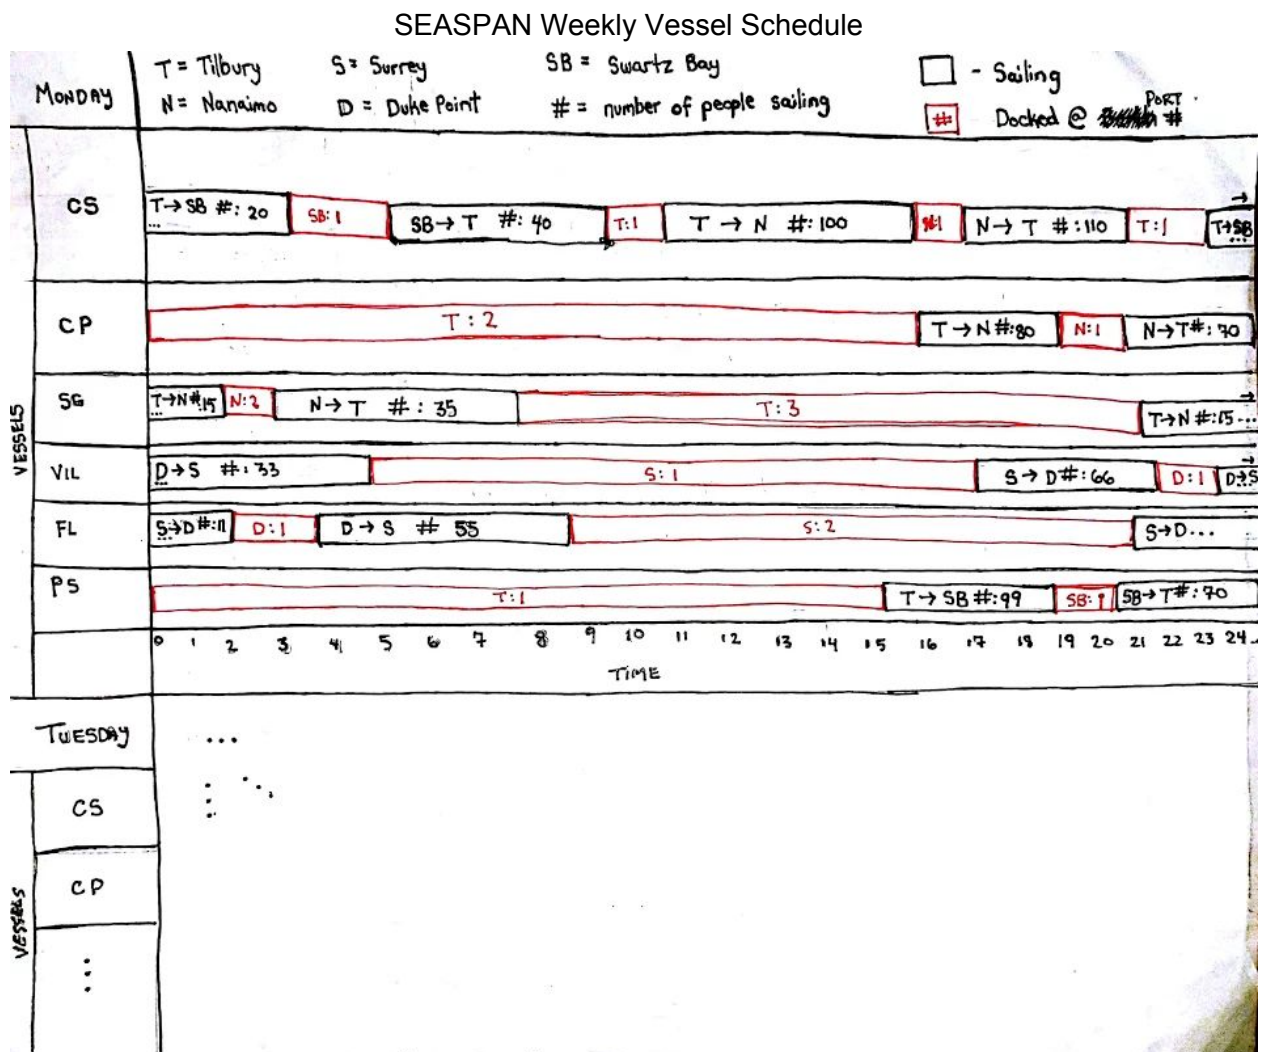 SEASPAN Weekly Vessel Schedule
MONDAY
T = Tilbury S = Surrey SB = Swartz Bay - Sailing
N = Nanaimo D = Duke Point # = number of people sailing # Docked @ PORT #
VESSELS
CS
T→SB #: 20 ... SB: 1 SB→T #: 40 T:1 T→N #:100 :1 N→T #:110 T:1 → T→SB ...
CP
T: 2 T→N #:80 N:1 N→T #: 70
SG
T→N #:15 ... N:2 N→T #: 35 T:3 → T→N #:15 ...
VIL
D→S #: 33 ... S: 1 S→D #: 66 D: 1 → D→S ...
FL
S→D #:11 ... D:1 D→S # 55 S:2 S→D...
PS
T:1 T→SB #:99 SB: 1 SB→T #: 70
0 1 2 3 4 5 6 7 8 9 10 11 12 13 14 15 16 17 18 19 20 21 22 23 24
TIME
TUESDAY ...
VESSELS
CS
CP